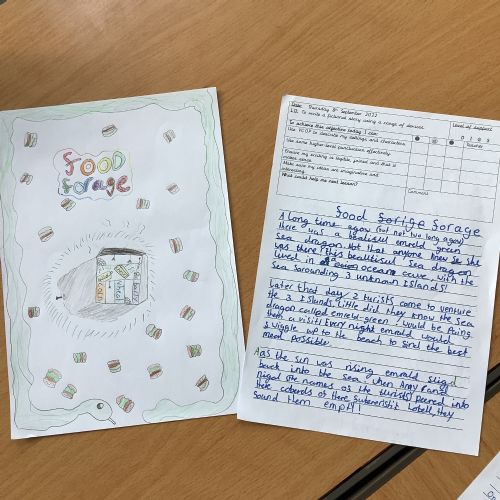 FOOD
Forage
Date: Thursday 8th September 2022
L.O. To write a fictional story using a range of devices
Level of support
To achieve this objective today I can:
Teacher
Use VCOP to describe my setting and characters
Use some higher-level punctuation effectively
Ensure my writing is legible, joined and that it makes sense
Make sure my ideas are imaginative and interesting
What could help me next lesson?
Comment
Food Forage
A long time agow (but not two long agow)
there was a beatisul emrald green
sea dragon but that anyone knew so she
was there this beautisul Sea dragon
lived in ocean cave with the
sea sorounding 3 unknown Islands!
Later that day 2 turists come to venture
the 3 Islands little did they know the sea
dragon called emrald-green would be paing
them a visit! Every night emrald would
wiggle up to the beach to sind the best
meal possible.
as the sun was rising emrald
back into the sea when Amy and
the names as the turists peered into
there coberds of there Hotell, they
sound them empty!